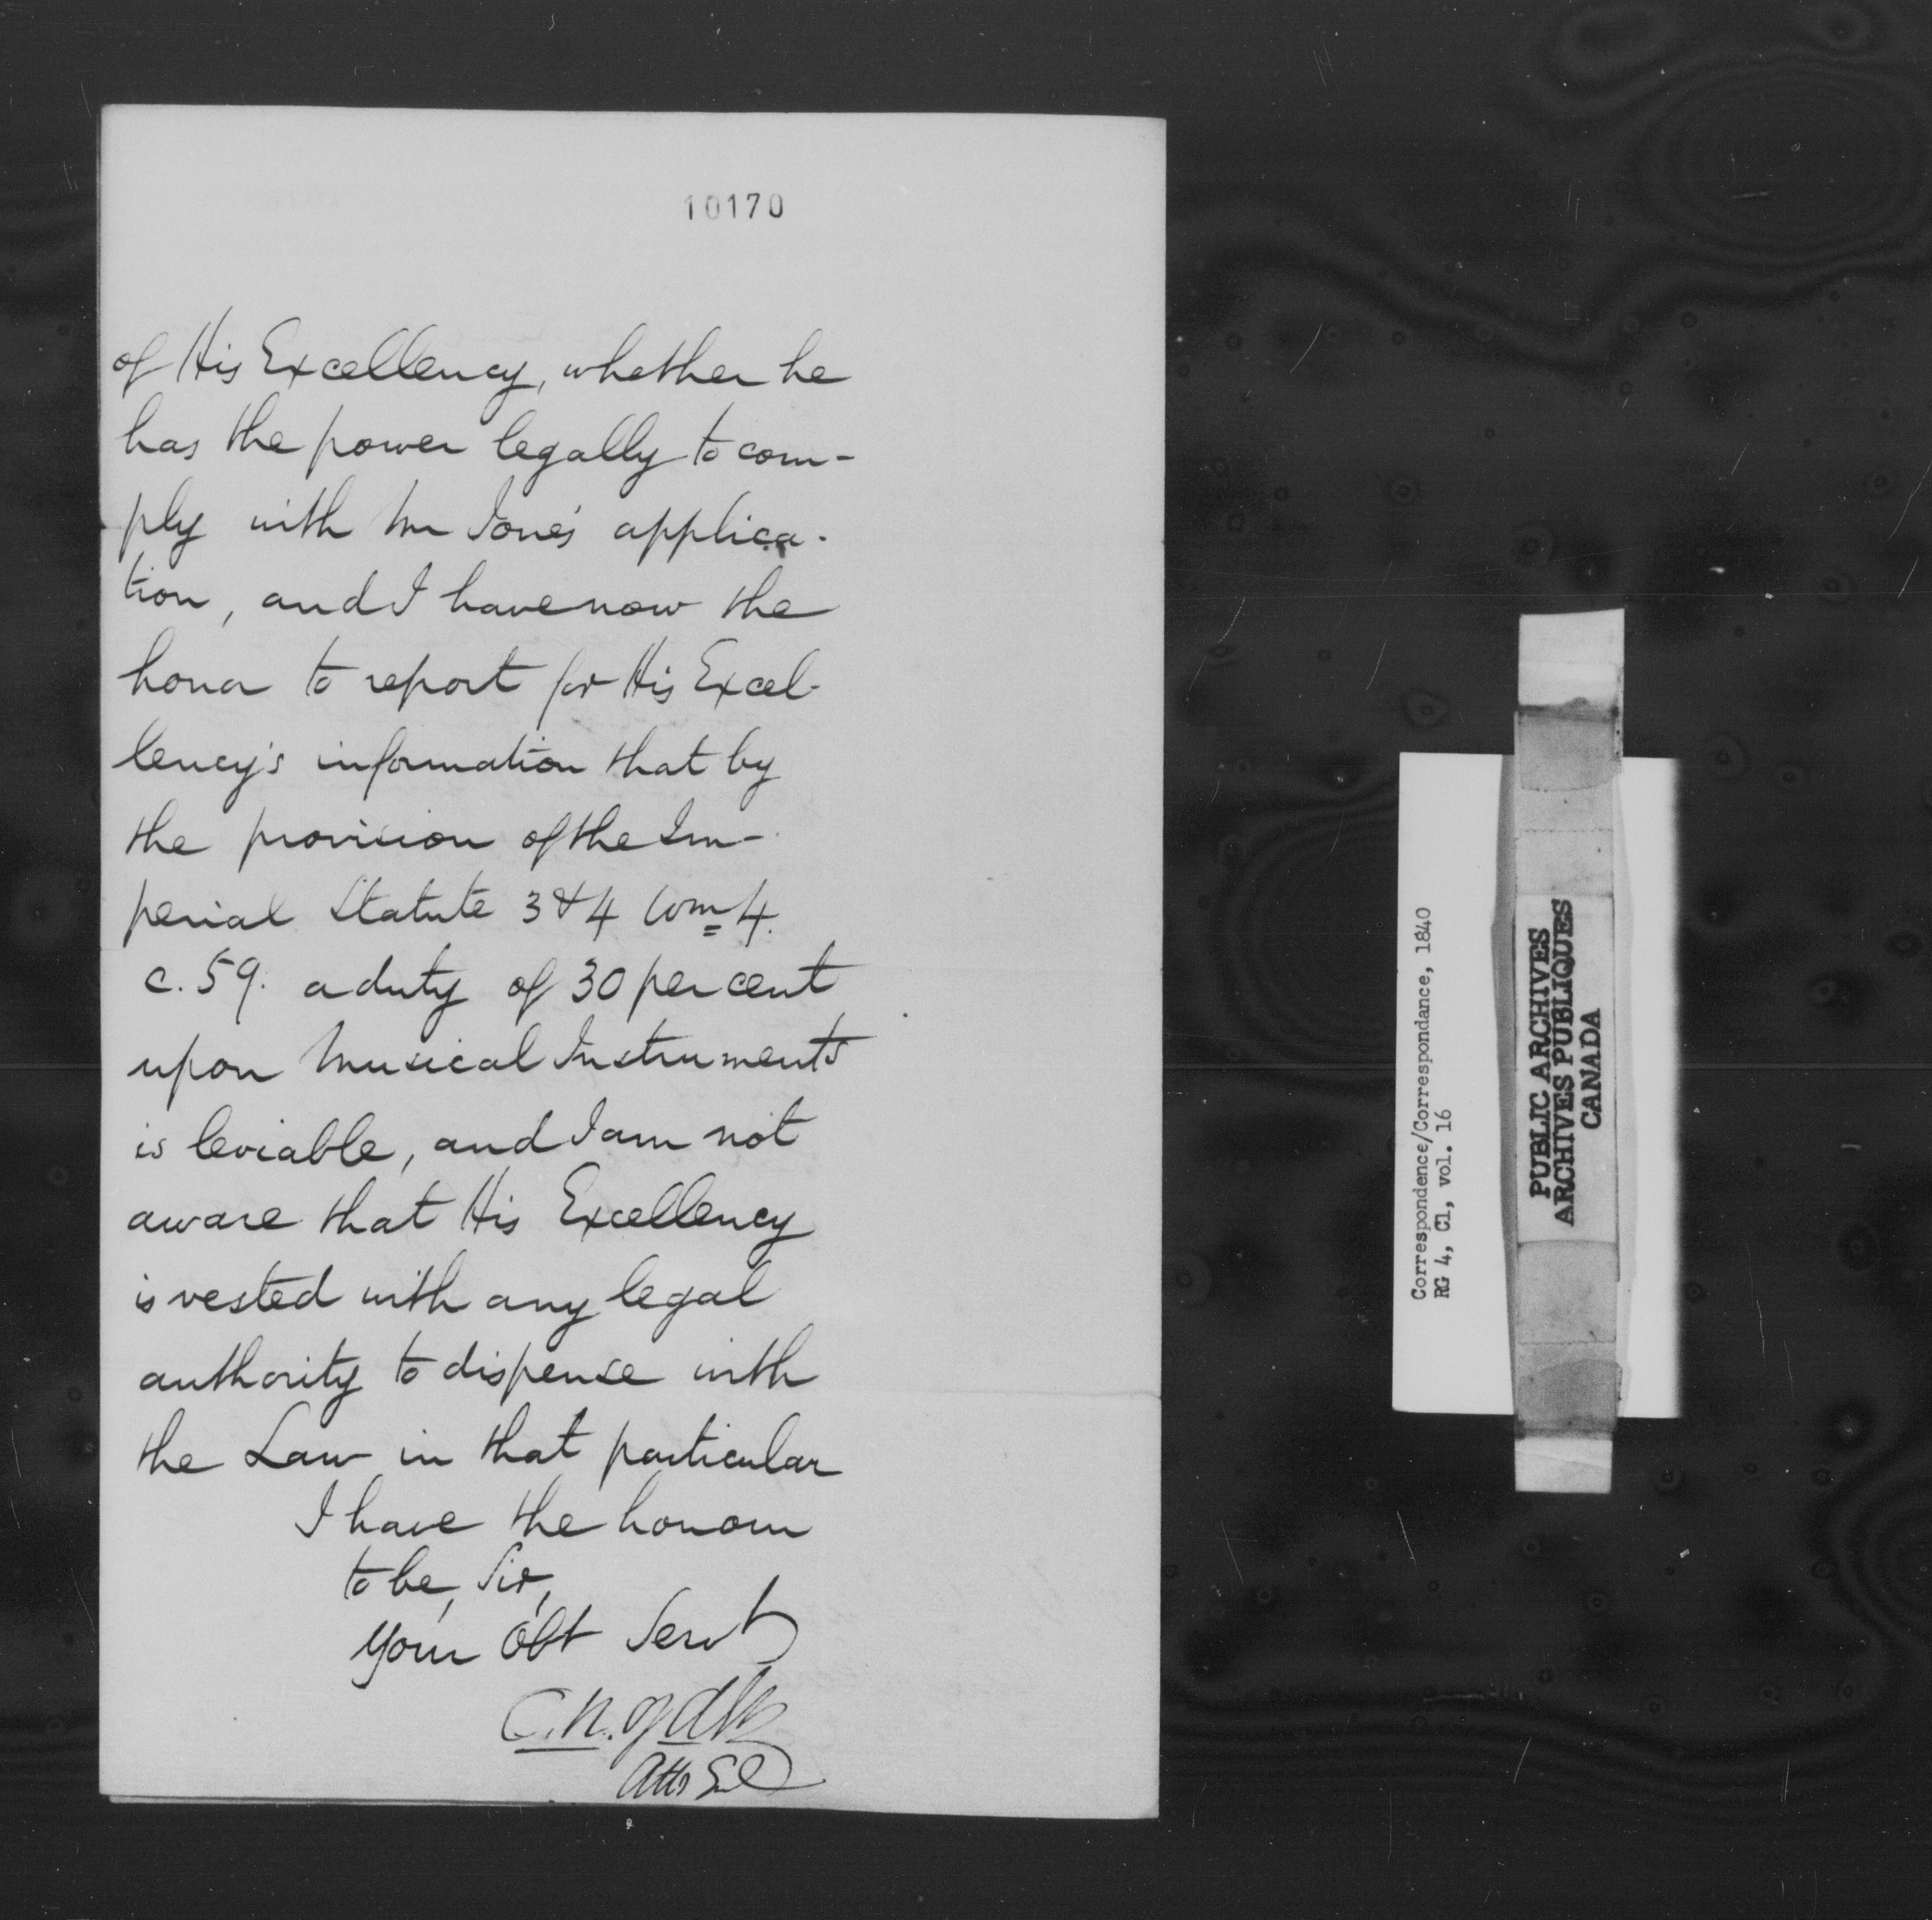 10170
of His Excellency, whether he
has the power legally to com-
ply with Mr Jone's applica-
tion, and I have now the
honor to report for His Excel-
lency's information that by
the provision of the Im-
perial Statute 3 & 4 Wm 4.
c. 59. a duty of 30 per cent
upon Musical Instruments
is leviable, and I am not
aware that His Excellency
is vested with any legal
authority to dispense with
the Law in that particular
I have the honour
to be, Sir,
Your Obt Servt
C. R. Ogden
Atty Genl
Correspondence/Correspondance, 1840
RG 4, C1, vol. 16
PUBLIC ARCHIVES
ARCHIVES PUBLIQUES
CANADA